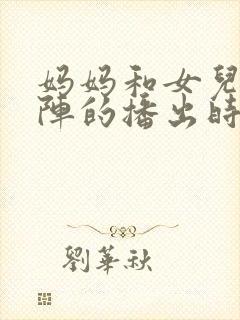 妈妈和女兒
陣的播出時
劉華秋